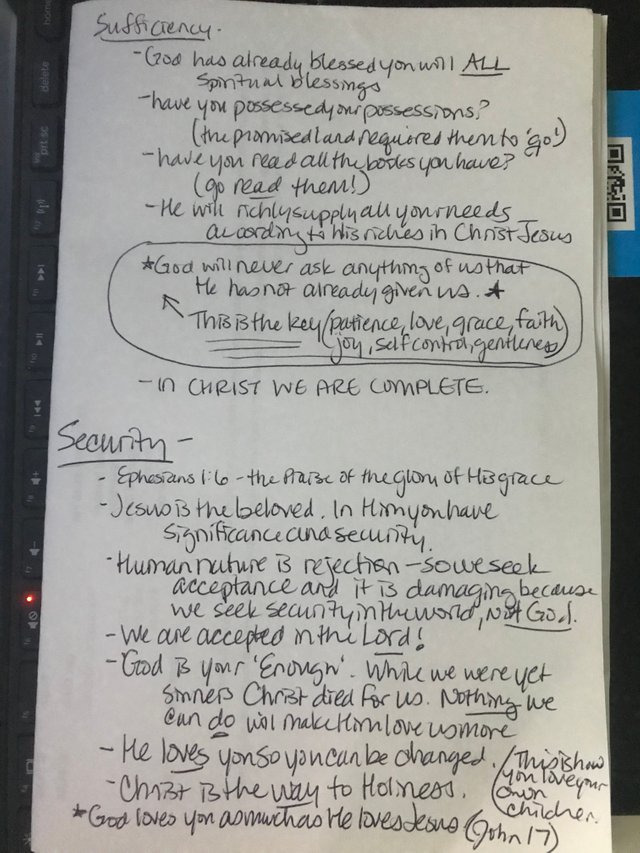 Sufficiency.
- God has already blessed you will ALL
spiritual blessings
- have you possessed your possessions?
(the promised land required them to 'go')
- have you read all the books you have?
(go read them!)
- He will richly supply all your needs
according to His riches in Christ Jesus
*God will never ask anything of us that
He has not already given us. *
This is the key (patience, love, grace, faith
joy, self control, gentleness)
- IN CHRIST WE ARE COMPLETE.
Security -
- Ephesians 1:6 - the Praise of the glory of His grace
- Jesus is the beloved. In Him you have
significance and security.
- Human nature is rejection - so we seek
acceptance and it is damaging because
we seek security in the world, not God.
- We are accepted in the Lord!
- God is your 'Enough'. While we were yet
sinners Christ died for us. Nothing we
can do will make Him love us more
- He loves you so you can be changed.
(This is how
you love your
own
children.
- Christ is the way to Holiness.
*God loves you as much as He loves Jesus (John 17)
home
delete
prt sc